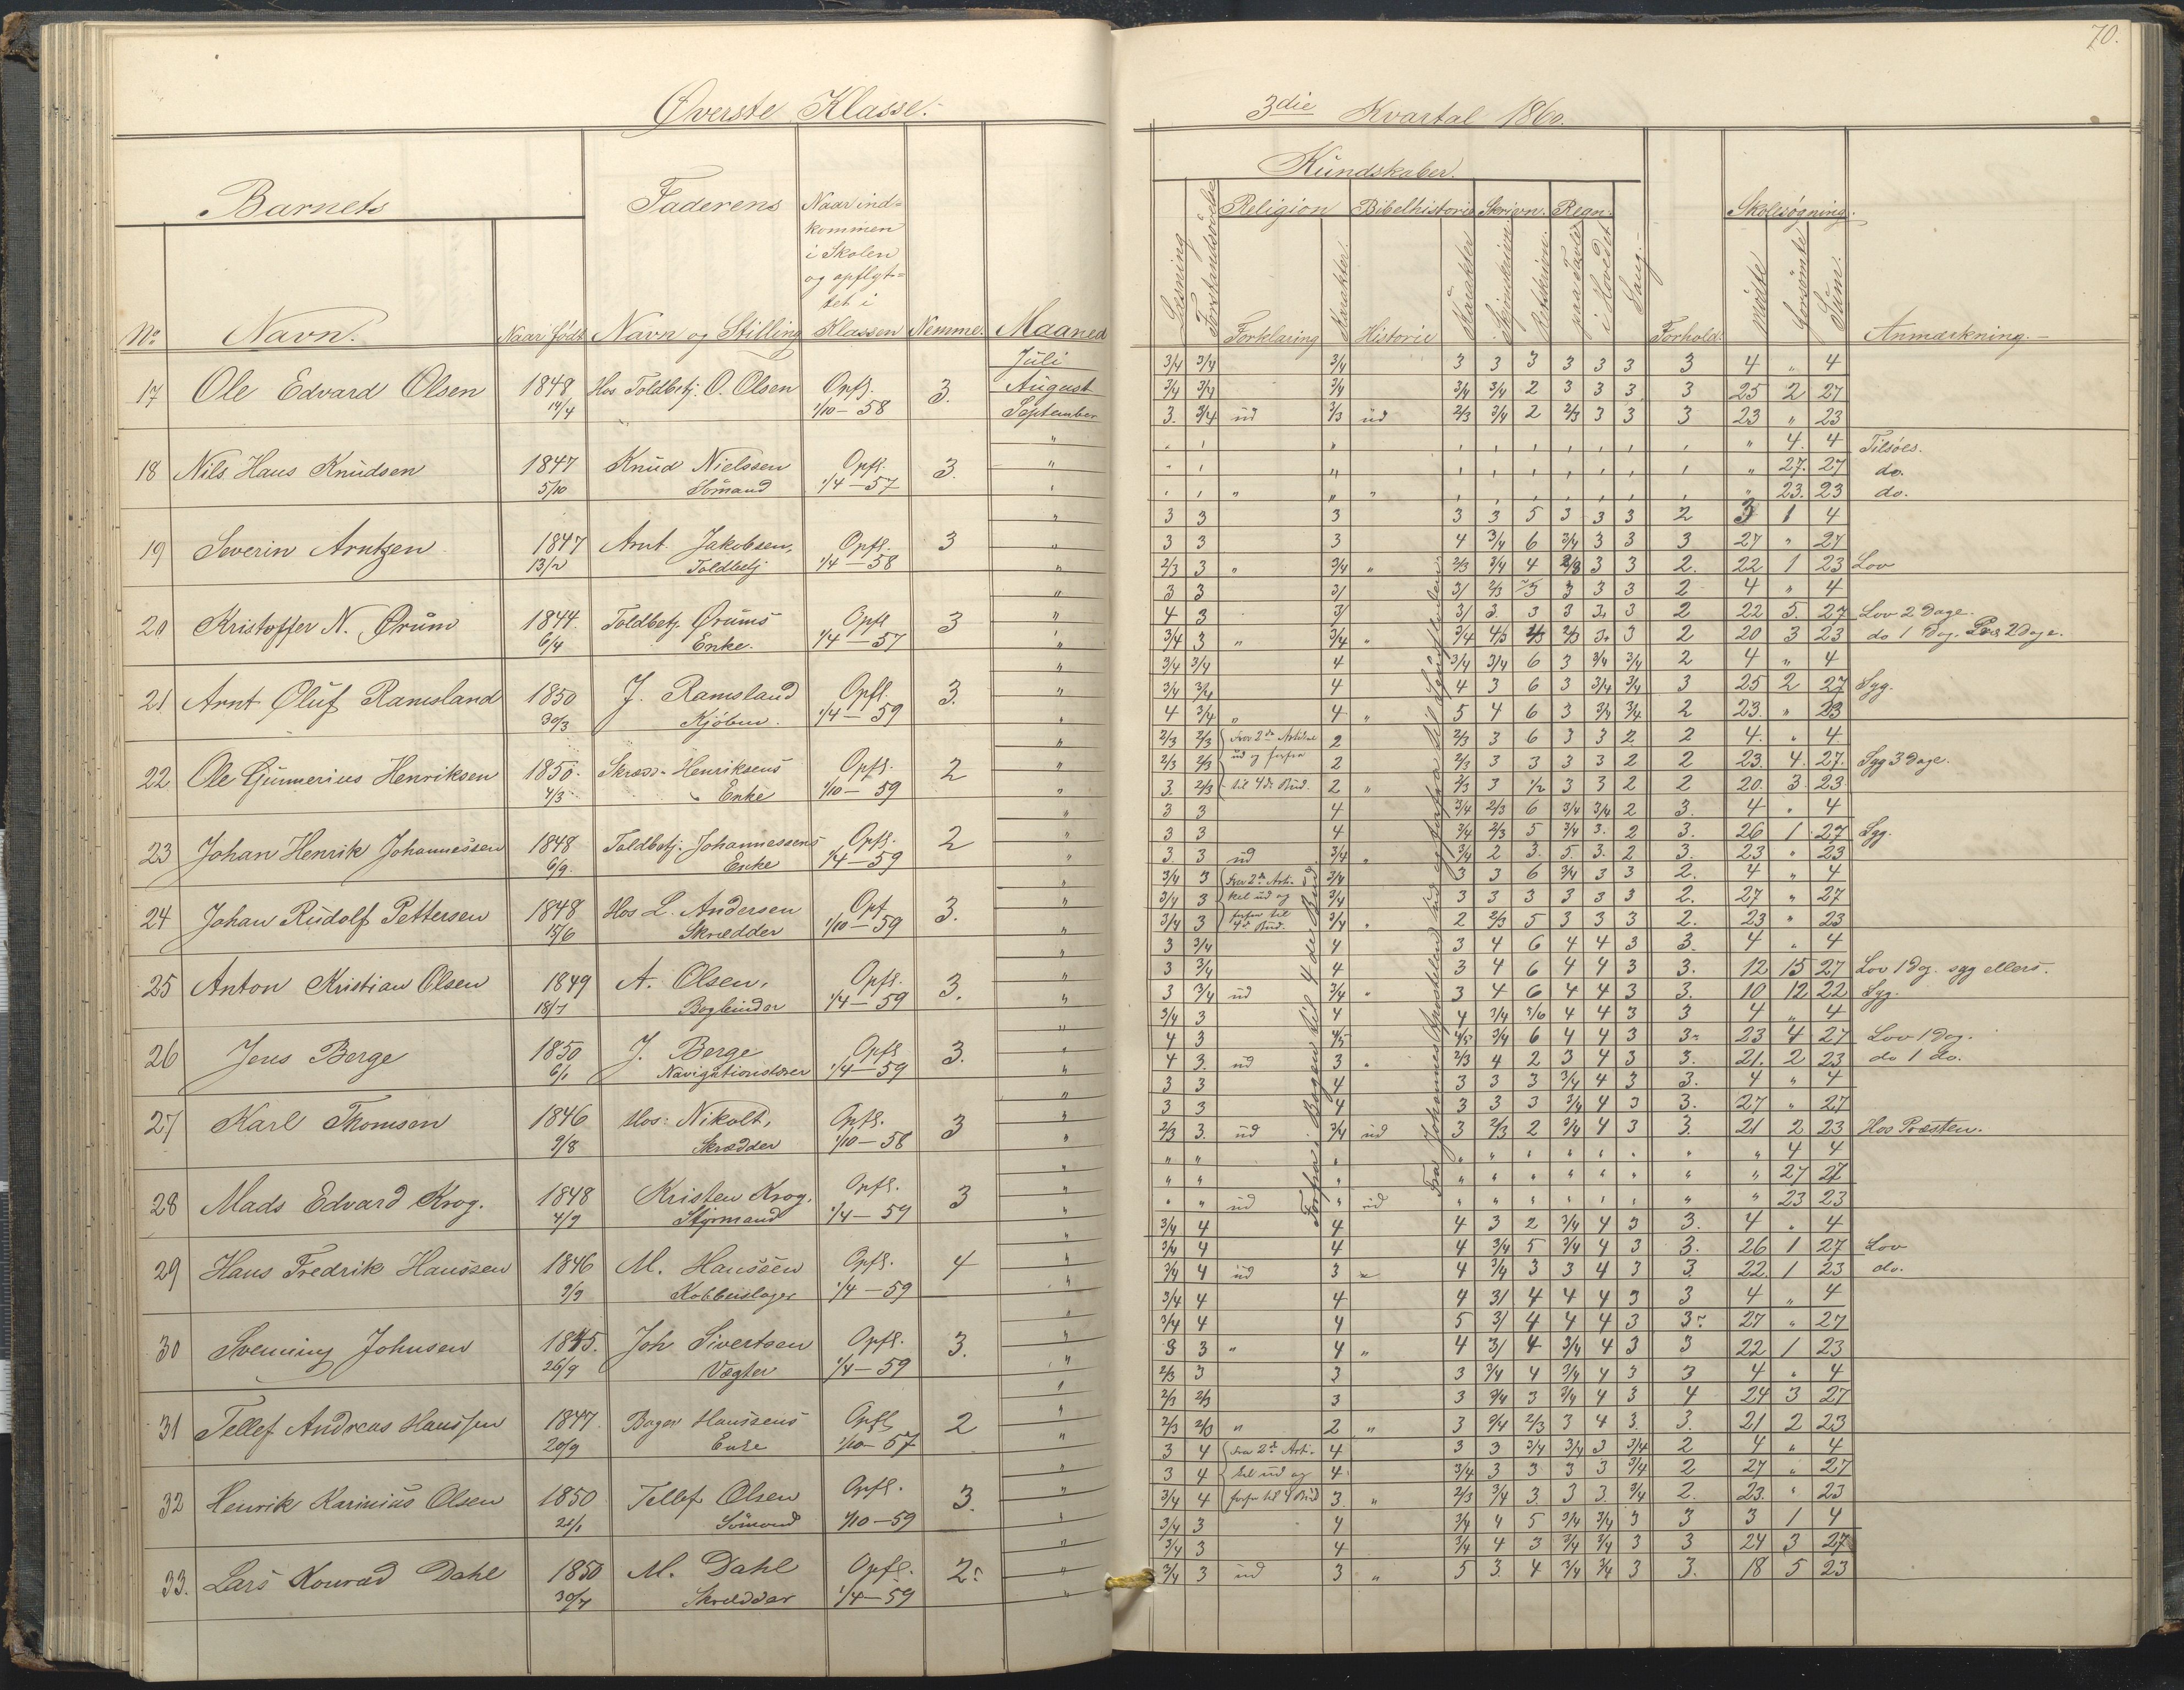 70.
Øverste Klasse.
3die Kvartal 1860.
Kundskaber.
Barnets
Faderens
Naar ind=
kommen
i Skolen
og opflyt=
tet i
Klassen
No
Navn.
Naar født
Navn og Stilling
Nemme.
Maaned
Læsning
Forstandsøvelse
Religion
Forklaring
Karakter.
Bibelhistorie
Historie
Karakter
Skrivn.
Retskrivn.
Regn.
paa Tavle
i Hovedet
Sang.
Forhold.
Skolesøgning.
mødte
forsømte
Sum.
Anmærkning.
Juli
17 Ole Edvard Olsen 1848 Hos Toldbetj. O. Olsen Opfl. 3. August
14/4 1/10 - 58 September
3/4 3/4 3/4 3 3 3 3 3 3 3 4 " 4
3/4 3/4 3/4 3/4 3/4 2 3 3 3 3 25 2 27
3. 3/4 ud 2/3 ud 2/3 3/4 2 2/3 3 3 3 23 " 23
18 Nils Hans Knudsen 1847 Knud Nielssen Opfl. 3.
5/10 Sømand 1/4 - 57
" 4. 4 Tilsøes.
" 27. 27 do.
" 23. 23 do.
19 Severin Arntzen 1847 Arnt Jakobsen, Opfl. 3
13/2 Toldbetj 1/4 - 58
3 3 3 3 3 5 3 3 3 2 3 1 4
3 3 3 4 3/4 6 3/4 3 3 3 27 " 27
2/3 3 " 3/4 " 2/3 3/4 4 2/3 3 3 2. 22 1 23 Lov
20 Kristoffer N. Ørum 1844. Toldbetj. Ørums Opfl 3
6/4 Enke. 1/4 - 57
3 3 3/ 3/ 2/3 3 3 3 2 4 " 4
4 3 3/ 3/ 3 3 3 3. 3 2 22 5. 27 Lov 2 Dage.
3/4 3 " 3/4 " 3/4 4/3 2/3 3. 3 2 20 3 23 do 1 Dag. 2 Dage.
21. Arnt Oluf Ramsland 1850 J. Ramsland Opfl. 3.
30/3 Kjøbm. 1/4 - 59
3/4 3/4 4 3/4 3/4 6 3 3/4 3/4 2 4 " 4
3/4 3/4 4 4 3 6 3 3/4 3/4 3 25 2 27 Syg.
4 3/4 " 4 " 5 4 6 3 3/4 3/4 2 23. " 23
22 Ole Gunnerius Henriksen 1850. Skræd. Henriksens Opfl. 2
4/3 Enke 1/10 - 59
2/3 2/3 Fra 2den Artikel 2 2/3 3 6 3 3 2 2 4. " 4.
2/3 2/3 ud og forfra 2 2/3 3 3 3 3 2 2 23. 4. 27. Syg 3 Dage.
3 2/3 til 4de Bud. 2 " 2/3 3 1/2 3 3 2 2 20. 3. 23
23 Johan Henrik Johannessen 1848 Toldbetj. Johannessens Opfl. 2
6/9. Enke 1/4 - 59
3 3 4 3/4 2/3 6 3/4 3/4 2 3. 4 " 4
3 3 4 3/4 2/3 5 3/4 3. 2 3. 26 1 27 Syg.
3. 3 ud 3/4 " 3/4 2 3. 5. 3. 2 3. 23 " 23
24 Johan Rudolf Pettersen 1848 Hos L. Andersen Opf 3.
15/6 Skrædder 1/10 - 59
3/4 3 Fra 2den Arti- 3/4 3 3 6 3/4 3 3 2. 4 " 4
3/4 3 kel ud og 3/4 3 3 3 3 3 3 2. 27 " 27
3/4 3 forfra til 4de Bud. 3/4 " 2 2/3 5 3 3 3 2. 23 " 23
25 Anton Kristian Olsen 1849 A. Olsen, Opfl. 3.
18/7 Bogbinder 1/4 - 59
3 3/4 4 3 4 6 4 4 3 3. 4 " 4
3 3/4 4 3 4 6 4 4 3 3. 12 15 27 Lov 1 Dag. syg ellers.
3 3/4 ud 3/4 " 3 4 6 4 4 3 3. 10 12 22 Syg.
26 Jens Berge 1850 J. Berge Opfl 3.
6/1 Navigationslærer 1/4 - 59
3/4 3 4 4 3/4 5/6 4 4 3 3 4 " 4
4 3 4/5 4/5 3/4 6 4 4 3 3 23 4 27 Lov 1 Dag.
4 3. ud 3 " 2/3 4 2 3 4 3 3. 21. 2 23 do 1 do.
27 Karl Thomsen 1846 Hos: Nikolt, Opfl. 3
9/8 Skrædder 1/10 - 58
3 3 4 3 3 3 3/4 4 3 3. 4 " 4
3 3 4 3 3 3 3/4 4 3 3. 27 " 27
2/3 3. ud 3/4 ud 3 2/3 2 3/4 4 3 3. 21 2 23 Hos Præsten.
28 Mads Edvard Krog. 1848 Kristen Krog. Opfl. 3
4/9 Styrmand 1/4 - 59
" 4 4
" 27 27
ud " ud " 23 23
29 Hans Fredrik Hanssen 1846 M. Hanssen Opfl. 4
9/9 Kobberslager 1/4 - 59
3/4 4 4 4 3 2 3/4 4 3 3. 4 " 4
3/4 4 4 4 3/4 5 3/4 4 3 3. 26 1 27 Lov
3/4 4 ud 3 " 4 3/4 3 3 4 3 3. 22. 1 23 do.
30 Svenning Johnsen 1845. Joh Sivertsen Opfl. 3.
26/9 Vægter 1/4 - 59
3/4 4 4 4 3/ 4 4 4 3 3 4 " 4
3/4 4 4 5 3/ 4 4 4 3 3 27 " 27
3 3 " 4 " 4 3/ 4 3/4 4 3 3 22 1 23
31 Tellef Andreas Hanssen 1847. Bager Hanssens Opfl 2
20/9 Enke 1/10 - 57
2/3 3 3 3 3/4 4 3/4 4 3 3 4 " 4
2/3 2/3 3 3 3/4 3 3/4 4 3 4 24 3 27
2/3 2/3 " 2 " 3 3/4 2/3 3 4 3. 3. 21 2 23
32 Henrik Karinius Olsen 1850 Tellef Olsen Opfl. 3.
21/1 Sømand 1/10 - 59
3 4 Fra 2den Arti- 4 3 3 3/4 3/4 3 3/4 2 4 " 4
3 4 kel ud og 4 3/4 3 3 3 3 3/4 2 27 " 27
3/4 4 forfra til 4 Bud 3 " 2/3 3/4 3. 3 3. 3/4 2. 23. " 23
33. Lars Konrad Dahl 1850 M. Dahl Opfl. 2.
30/7 Skrædder 1/4 - 59
3/4 3 4 3/4 4 5 3/4 3/4 3 3 3 1 4
3/4 3 4 3/4 4 3 3/4 3/4 3 3 24 3 27
3/4 3 ud 3 " 5 3. 4 3/4 3/4 3 3. 18 5 23
Forfra i Bogen til 4de Bud
Fra Johannes Apostelen ud og forfra til Syndfloden